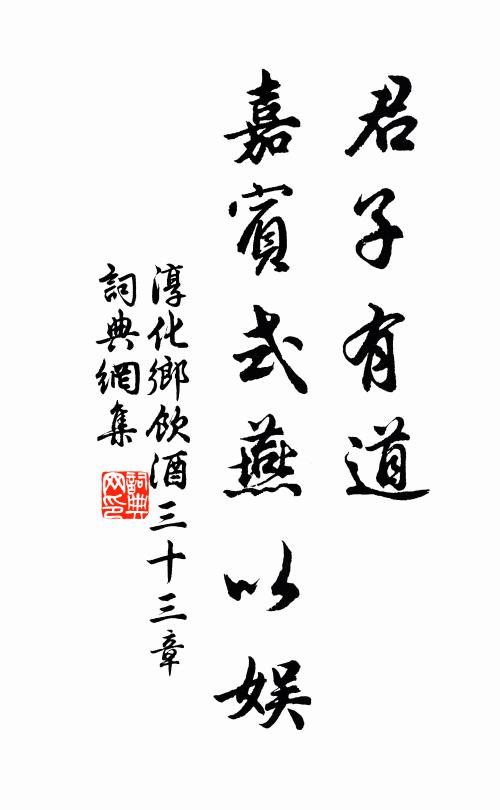 君子有道
嘉賓式燕以娱
淳化鄉飲酒三十三章
詞典網集
詞典
网印